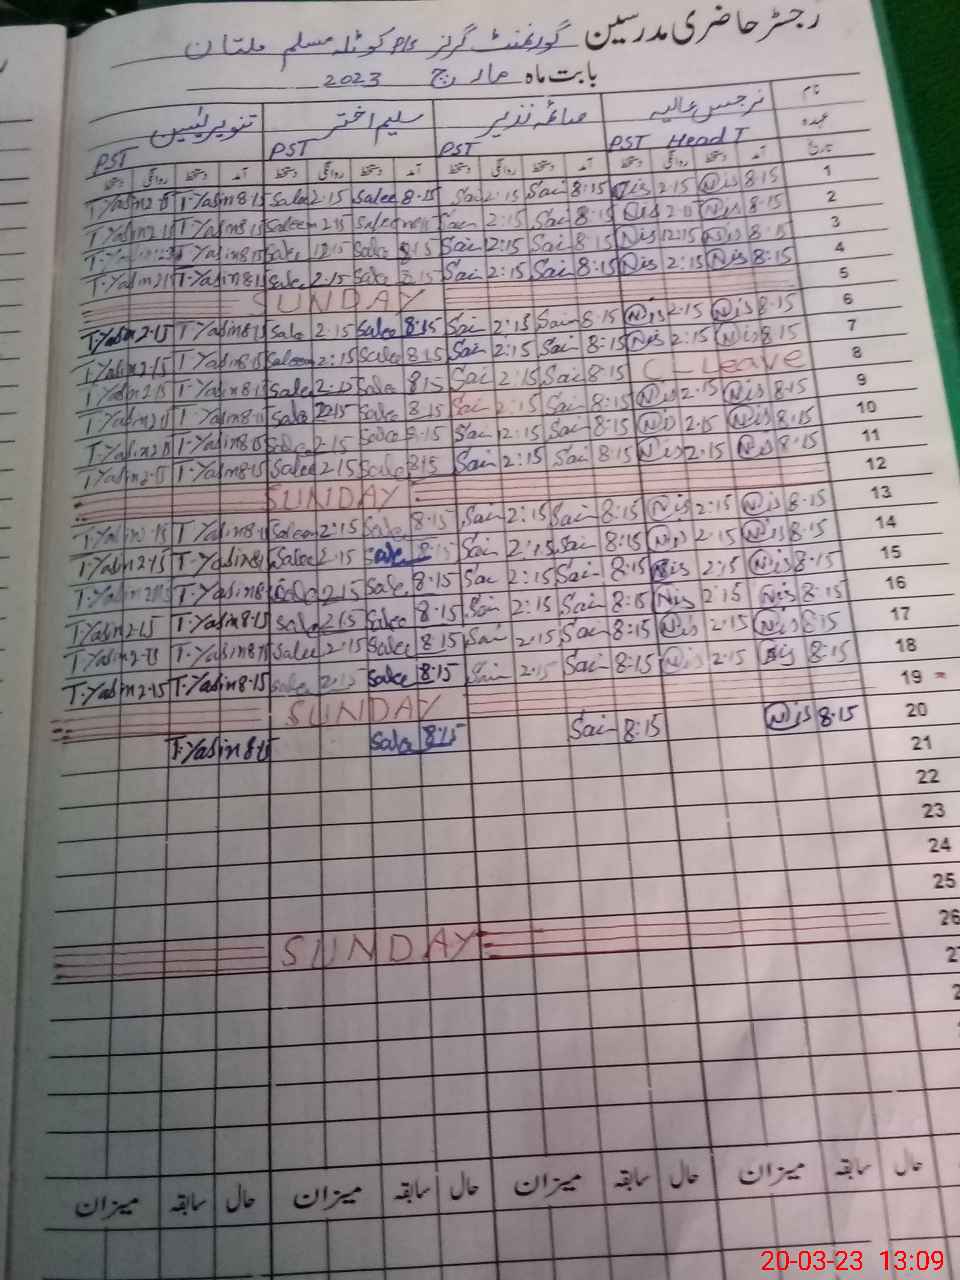 رجسٹر حاضری مدرسین گورنمنٹ گرلز P/S کوٹلہ مسلم ملتان
بابت ماہ مارچ 2023
نام نرجس عالیہ صائمہ نذیر سلیم اختر تنویر یٰسین
عہدہ PST Head T PST PST PST
تاریخ آمد دستخط روانگی دستخط آمد دستخط روانگی دستخط آمد دستخط روانگی دستخط آمد دستخط روانگی دستخط
T.Yasin 2:15 T.Yasin 8:15 Salee 2:15 Salee 8:15 Sai 2:15 Sai 8:15 Nis 2:15 Nis 8:15 1
T.Yasin 2:15 T.Yasin 8:15 Saleem 2:15 Saleem Sai 2:15 Sai 8:15 Nis Nis 8:15 2
T.Yasin 8:15 Sale 12:15 Sale 8:15 Sai 12:15 Sai 8:15 Nis 12:15 Nis 8:15 3
T.Yasin 2:15 T.Yasin 8:15 Salee 2:15 Sale 8:15 Sai 2:15 Sai 8:15 Nis 2:15 Nis 8:15 4
SUNDAY 5
T.Yasin 2:15 T.Yasin 8:15 Sale 2:15 Salee 8:15 Sai 2:15 Sai 8:15 Nis 2:15 Nis 8:15 6
T.Yasin 2:15 T.Yasin 8:15 Saleem 2:15 Salee 8:15 Sai 2:15 Sai 8:15 Nis 2:15 Nis 8:15 7
T.Yasin 2:15 T.Yasin 8:15 Salee 2:15 Sale 8:15 Sai 2:15 Sai 8:15 C-Leave 8
T.Yasin 2:15 T.Yasin 8:15 Sale 2:15 Sale 8:15 Sai 2:15 Sai 8:15 Nis 2:15 Nis 8:15 9
T.Yasin 2:15 T.Yasin 8:15 Salee 2:15 Salee 8:15 Sai 2:15 Sai 8:15 Nis 2:15 Nis 8:15 10
T.Yasin 2:15 T.Yasin 8:15 Salee 2:15 Sale 8:15 Sai 2:15 Sai 8:15 Nis 2:15 Nis 8:15 11
SUNDAY 12
T.Yasin 2:15 T.Yasin 8:15 Saleem 2:15 Sale 8:15 Sai 2:15 Sai 8:15 Nis 2:15 Nis 8:15 13
T.Yasin 2:15 T.Yasin 8:15 Salee 2:15 Sale 8:15 Sai 2:15 Sai 8:15 Nis 2:15 Nis 8:15 14
T.Yasin 2:15 T.Yasin 8:15 Sale 2:15 Sale 8:15 Sai 2:15 Sai 8:15 Nis 2:15 Nis 8:15 15
T.Yasin 2:15 T.Yasin 8:15 Sale 2:15 Salee 8:15 Sai 2:15 Sai 8:15 Nis 2:15 Nis 8:15 16
T.Yasin 2:15 T.Yasin 8:15 Salee 2:15 Salee 8:15 Sai 2:15 Sai 8:15 Nis 2:15 Nis 8:15 17
T.Yasin 2:15 T.Yasin 8:15 Salee 2:15 Salee 8:15 Sai 2:15 Sai 8:15 Nis 2:15 Nis 8:15 18
SUNDAY 19
T.Yasin 8:15 Sale 8:15 Sai 8:15 Nis 8:15 20
21
22
23
24
25
SUNDAY 26
حال سابقہ میزان حال سابقہ میزان حال سابقہ میزان حال سابقہ میزان
20-03-23 13:09